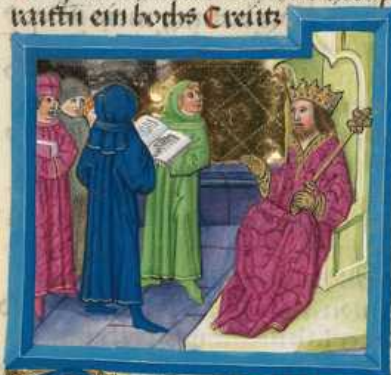 raittn ein hochs Creütz